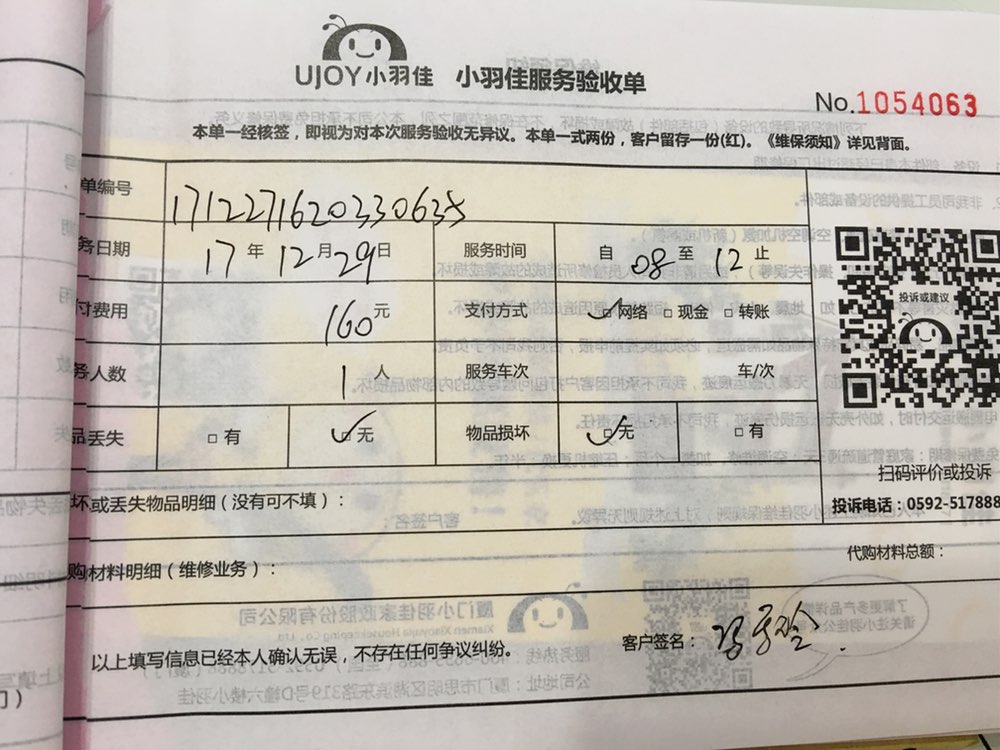 UJOY小羽佳 小羽佳服务验收单
No.1054063
本单一经核签，即视为对本次服务验收无异议。本单一式两份，客户留存一份(红)。《维保须知》详见背面。
单编号 171227162033063
务日期 17年12月29日 服务时间 自08至12止
付费用 160元 支付方式 ✓□网络 □现金 □转账
务人数 1人 服务车次 车/次
品丢失 □有 ✓□无 物品损坏 ✓□无 □有
投诉或建议
扫码评价或投诉
投诉电话：0592-517888
坏或丢失物品明细（没有可不填）：
代购材料总额：
购材料明细（维修业务）：
客户签名：
以上填写信息已经本人确认无误，不存在任何争议纠纷。